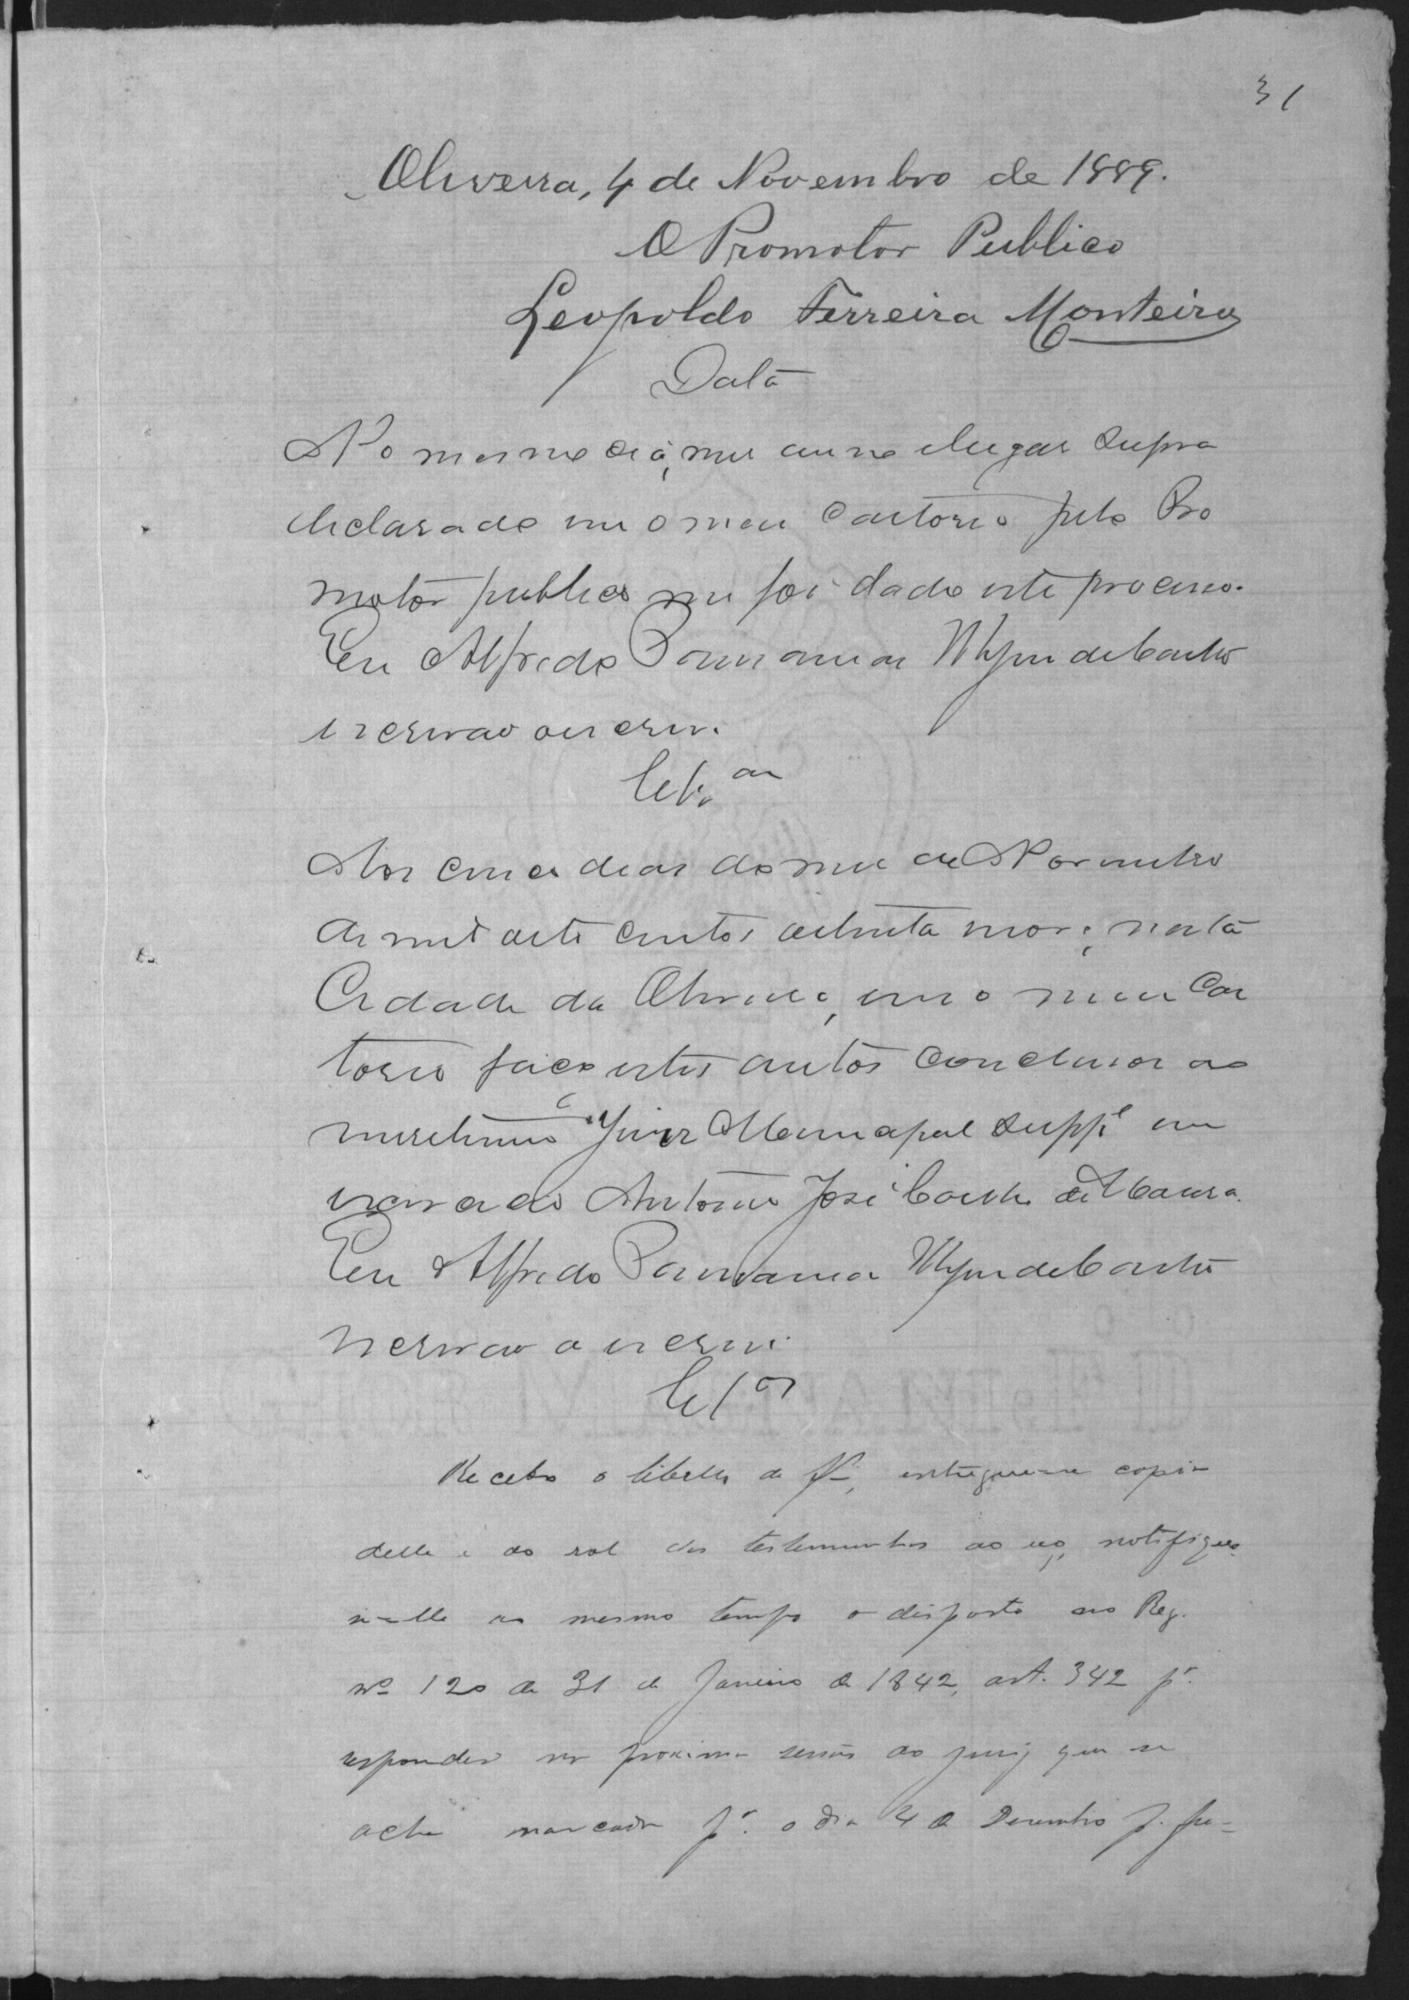 31
Oliveira, 4 de Novembro de 1889.
O Promotor Publico
Leopoldo Ferreira Monteiro
Data
No mesmo dia, mez anno e lugar supra
declarado em o meu Cartorio pelo Pro
motor publico me foi dado este processo.
Eu Alfredo de Castro
escrivão o escrevi.
Cls.am
Aos cinco dias do mez de Novembro
de mil oito centos oitenta nove, nesta
Cidade da Oliveira, em o meu Car
torio faço estes autos conclusos ao
meretissimo Juiz Municipal Supp.e em
exercicio Antonio José Coelho de Moura.
Eu Alfredo de Castro
escrivão o escrevi.
Cls.os
Recebo o libello de f, entregue-se copia
delle e do rol das testemunhas ao reo, notifique
se-lle ao mesmo tempo o disposto no Reg.
nº 120 de 31 de Janeiro de 1842, art. 342 p.r
responder na proxima sessão do jury que se
acha marcada p.r o dia 4 de Dezembro p. fu-